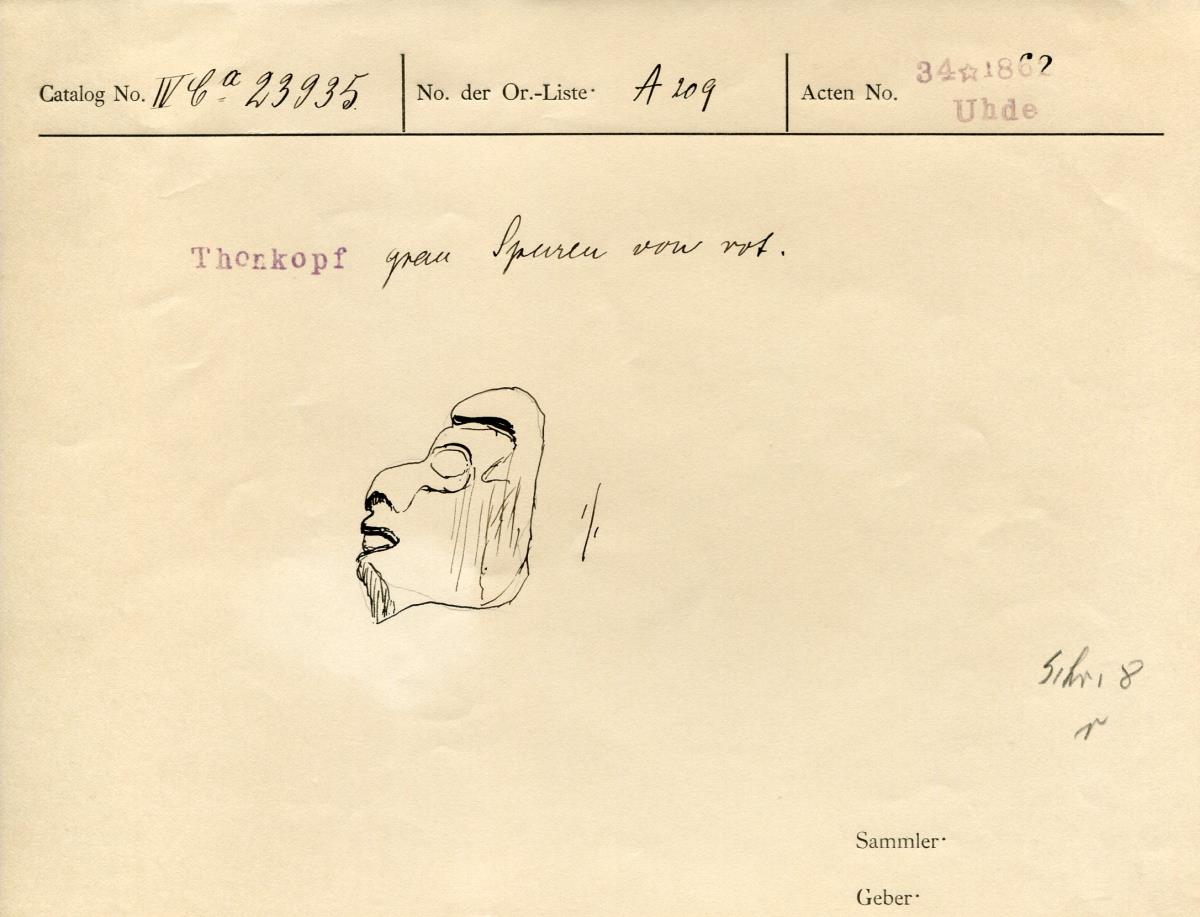 Catalog No. IV Ca 23935 No. der Or.-Liste. A 209 Acten No. 34☆1862
Uhde
Thonkopf grau Spuren von rot.
1/1
Schr. 8
r
Sammler.
Geber.